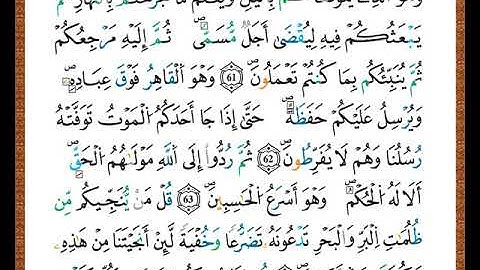 وَهُوَ ٱلَّذِي يَتَوَفَّىٰكُم بِٱلَّيْلِ وَيَعْلَمُ مَا جَرَحْتُم بِٱلنَّهَارِ ثُمَّ
يَبْعَثُكُمْ فِيهِ لِيُقْضَىٰ أَجَلٌ مُّسَمًّى ۖ ثُمَّ إِلَيْهِ مَرْجِعُكُمْ
ثُمَّ يُنَبِّئُكُم بِمَا كُنتُمْ تَعْمَلُونَ ۖ 61 وَهُوَ ٱلْقَاهِرُ فَوْقَ عِبَادِهِۦ ۖ
وَيُرْسِلُ عَلَيْكُمْ حَفَظَةً ۖ حَتَّىٰ إِذَا جَا أَحَدَكُمُ ٱلْمَوْتُ تَوَفَّتْهُ
رُسُلُنَا وَهُمْ لَا يُفَرِّطُونَ ۖ 62 ثُمَّ رُدُّوا إِلَى ٱللَّهِ مَوْلَىٰهُمُ ٱلْحَقِّ ۖ
أَلَا لَهُ ٱلْحُكْمُ ۖ وَهُوَ أَسْرَعُ ٱلْحَٰسِبِينَ ۖ 63 قُلْ مَنْ يُنَجِّيكُم مِّن
ظُلُمَٰتِ ٱلْبَرِّ وَٱلْبَحْرِ تَدْعُونَهُۥ تَضَرُّعًا وَخُفْيَةً لَّئِنْ أَنجَيْتَنَا مِنْ هَٰذِهِۦ